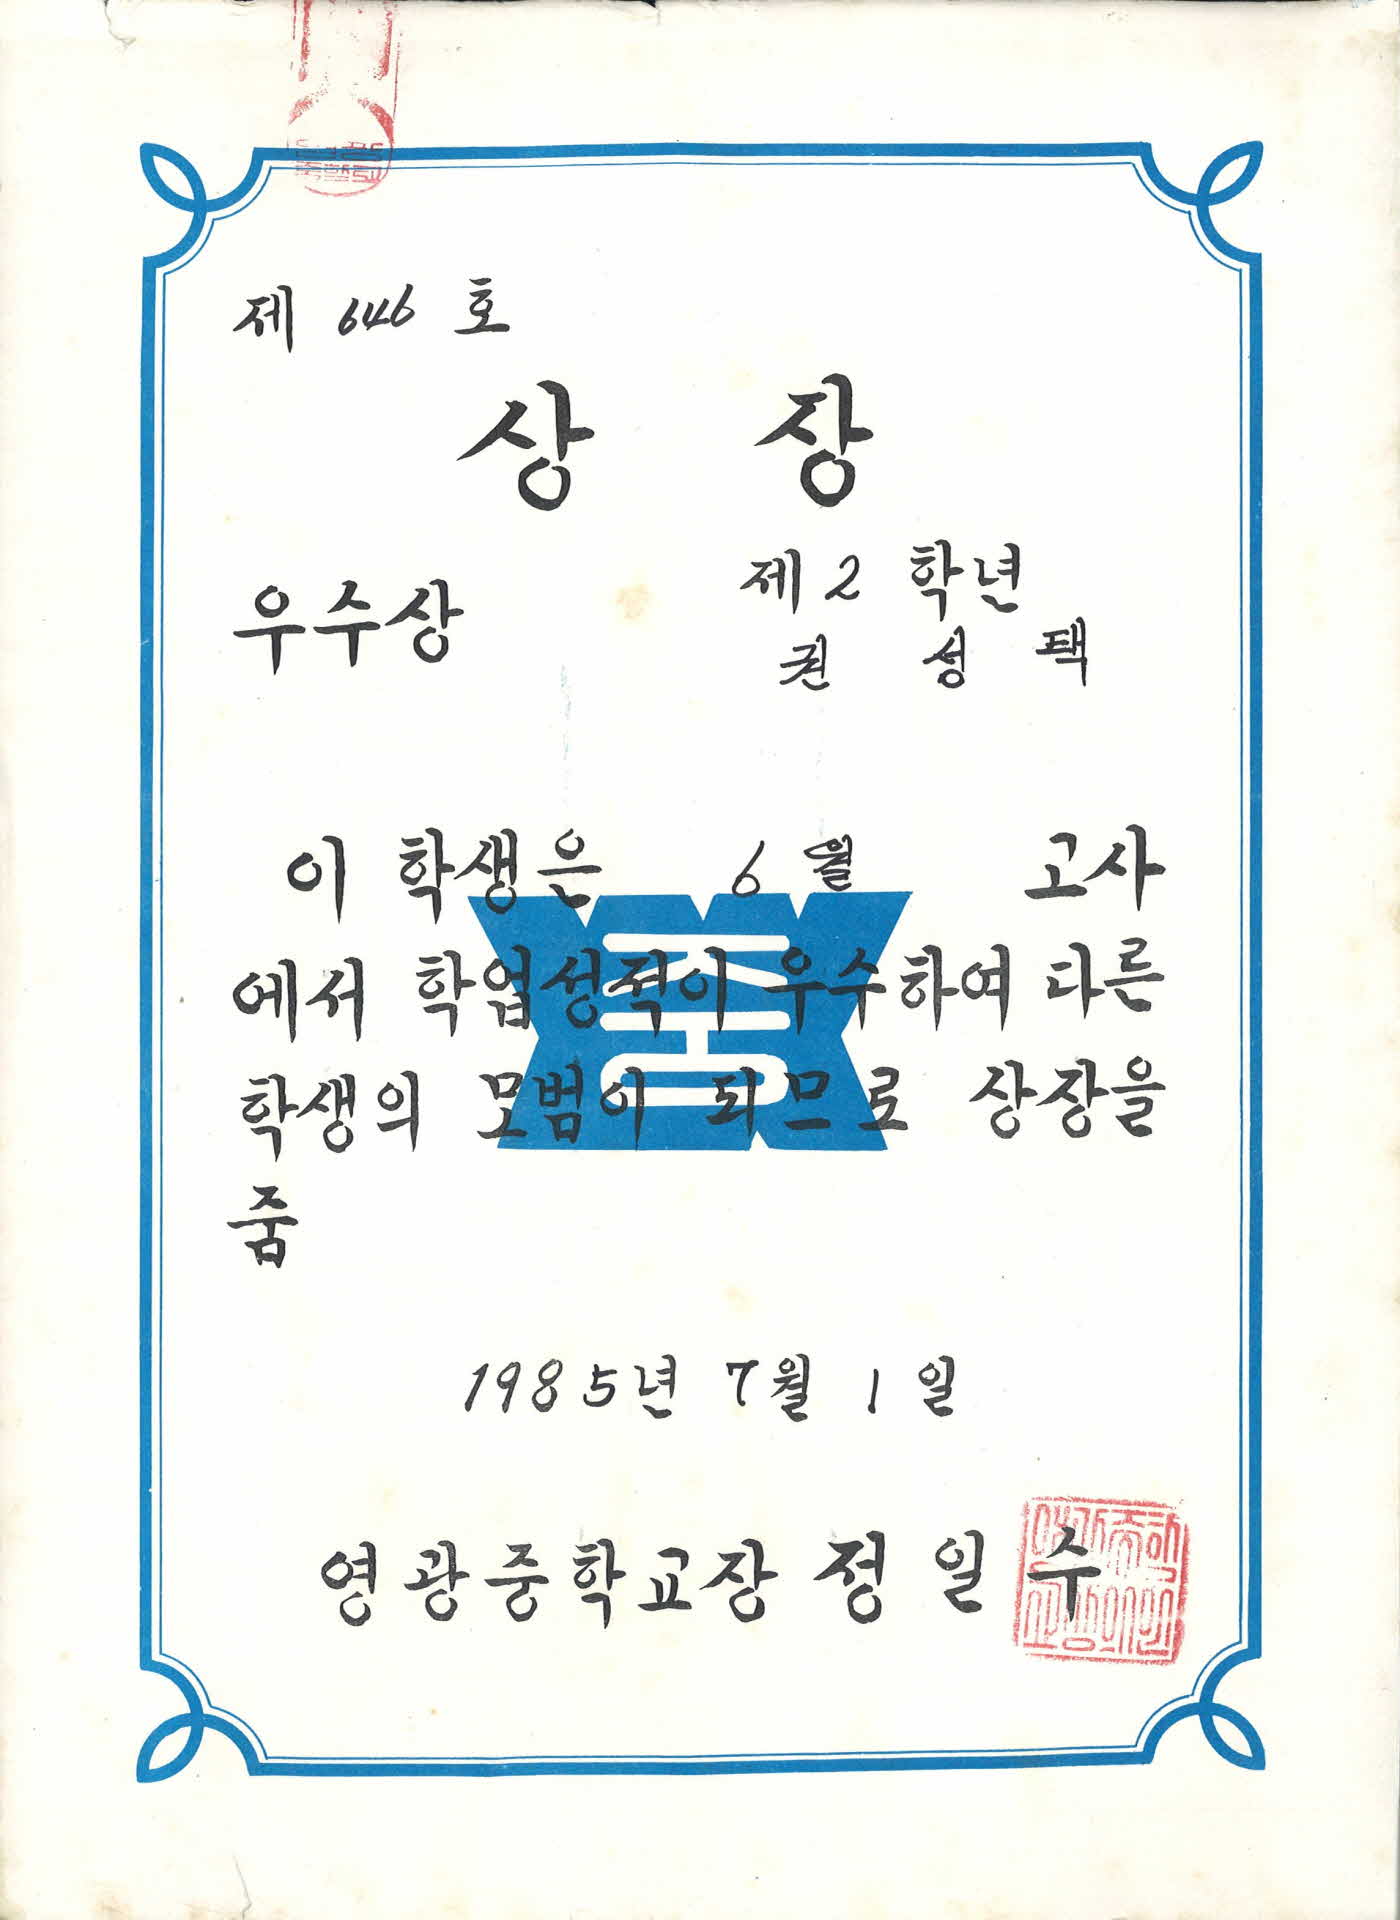 제 646 호
상 장
우수상
제 2 학년
권 성 택
이 학생은 6월 고사
에서 학업성적이 우수하여 다른
학생의 모범이 되므로 상장을
줌
중
1985년 7월 1일
영광중학교장 정 일 수